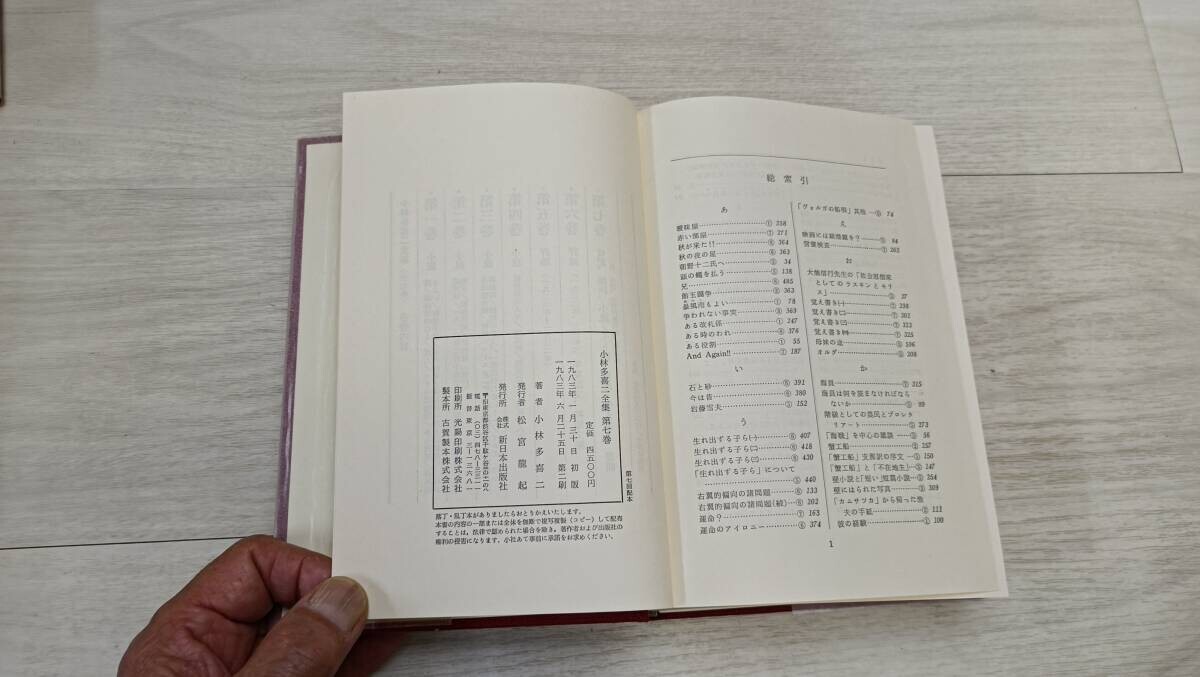 小林多喜二全集 第七巻
定価 四五〇〇円
一九八三年 一月 三十日 初版
一九八三年 六月 二十五日 第二刷
著者 小林多喜二
発行者 松宮龍起
発行所 株式会社 新日本出版社
印刷所 光陽印刷株式会社
製本所 古賀製本株式会社
第七回配本
落丁・乱丁本がありましたらおとりかえいたします。
本書の内容の一部または全体を無断で複写複製（コピー）して配布
することは、法律で認められた場合を除き、著作者および出版社の
権利の侵害になります。小社あて事前に承諾をお求めください。
総索引
あ
曖昧屋 ① 258
赤い部屋 ① 271
秋が来た!! ⑥ 364
秋の夜の星 ⑥ 363
朝野十二氏へ ⑤ 34
頭の蠅を払う ⑤ 138
兄 ⑥ 485
暴風雨もよい ① 78
争われない事実 ③ 369
ある改札係 ① 247
ある時のわれ ⑥ 376
ある役割 ① 55
And Again!! ⑦ 187
い
石と砂 ⑥ 391
今は昔 ⑥ 380
岩藤雪夫 ⑤ 152
う
生れ出ずる子ら㈠ ⑥ 407
生れ出ずる子ら㈡ ⑥ 418
生れ出ずる子ら㈢ ⑥ 430
「生れ出ずる子ら」について
⑤ 440
右翼的偏向の諸問題 ⑥ 133
右翼的偏向の諸問題(続)
運命？ ⑦ 163
運命のアイロニー ⑥ 374
「ヴォルガの船唄」其他 ⑤ 74
え
映画には顕微鏡を？ ⑤ 84
営養検査
お
大熊信行先生の「社会思想家
としてのラスキンとモリ
ス」 ⑤ 37
覚え書き㈠
覚え書き㈡
覚え書き㈢
覚え書き㈣
母妹の途
オルグ
か
階級としての農民とプロレタ
リアート
「海戦」を中心の雑談
蟹工船
「蟹工船」支那訳の序文
「蟹工船」と「不在地主」
壁小説と「短い」短篇小説
壁にはられた写真
「カムサツカ」から帰った漁
夫の手紙
彼の経験
1